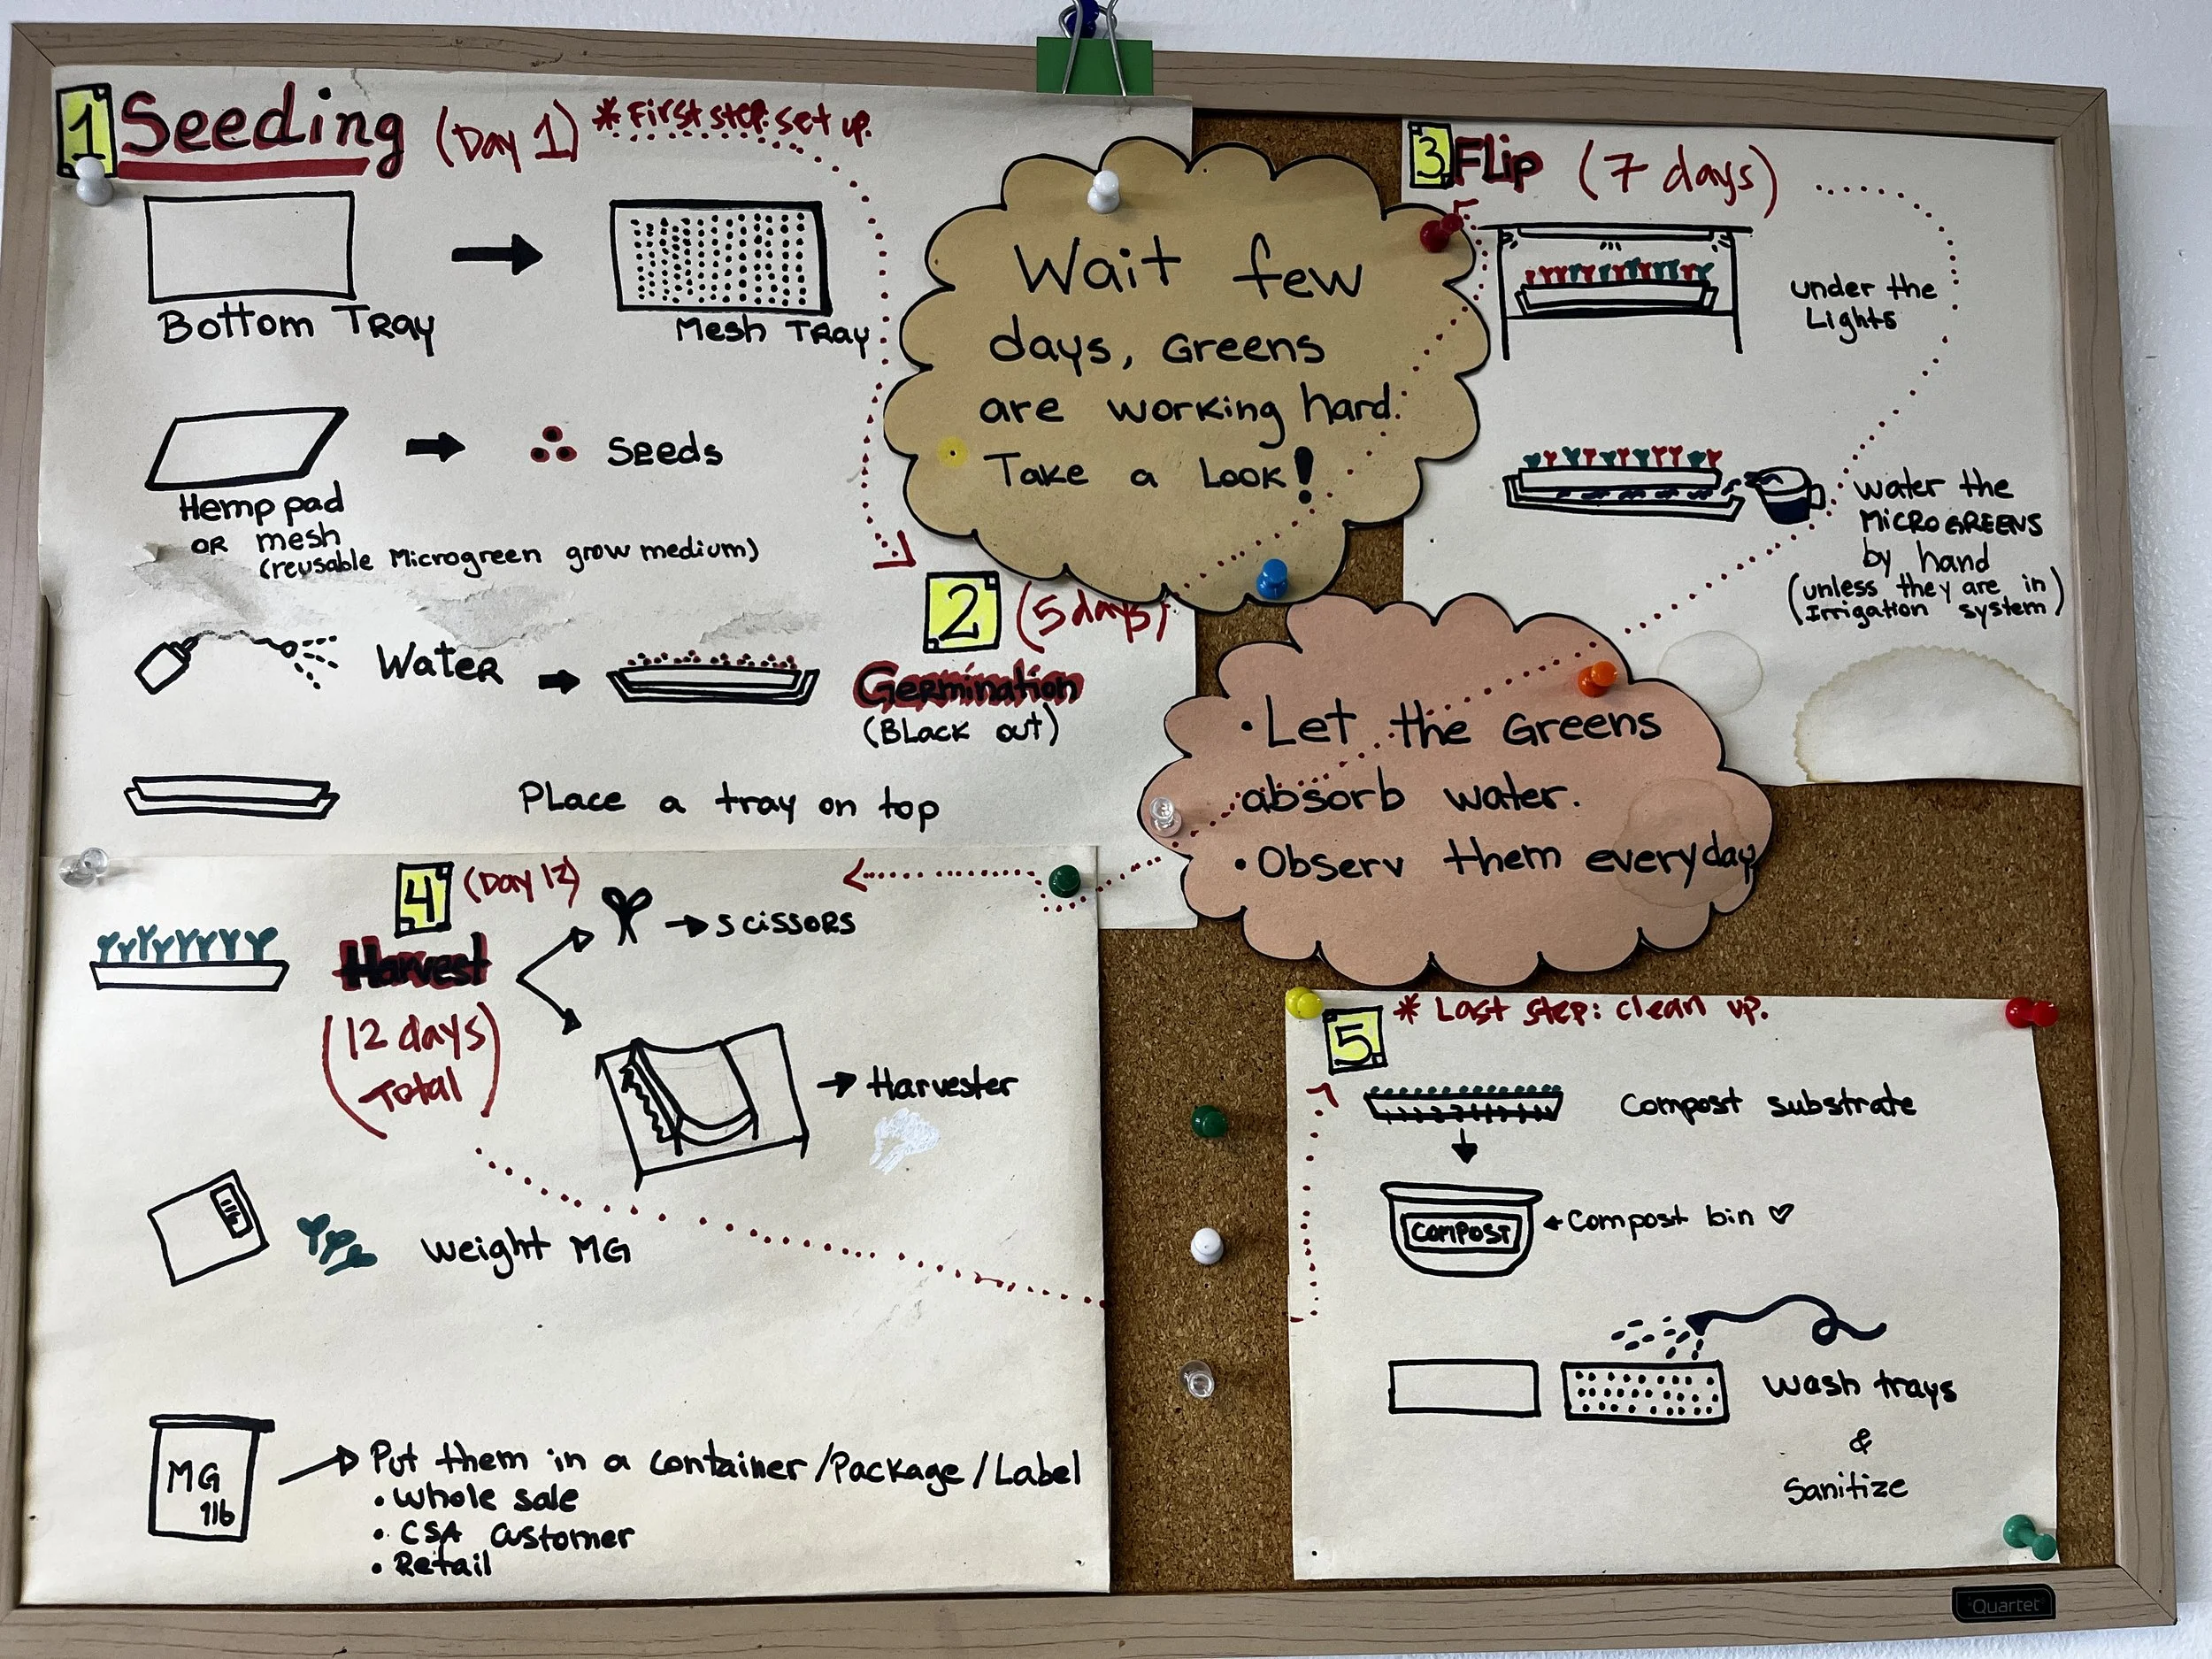 1 Seeding (Day 1) * First step: set up.
Bottom Tray
Mesh Tray
Hemp pad
OR mesh
(reusable Microgreen grow medium)
Seeds
Water
Place a tray on top
Wait few
days, Greens
are working hard.
Take a Look!
2 (5 days)
Germination
(Black out)
3 Flip (7 days)
under the
Lights
water the
MICROGREENS
by hand
(unless they are in
Irrigation system)
• Let the Greens
absorb water.
• Observ them everyday
4 (Day 12)
Harvest
(12 days
Total)
scissors
Harvester
weight MG
MG
1lb
Put them in a container/Package/Label
• Whole sale
• CSA Customer
• Retail
5 * Last step: clean up.
Compost substrate
COMPOST
Compost bin ♡
Wash trays
&
Sanitize
Quartet